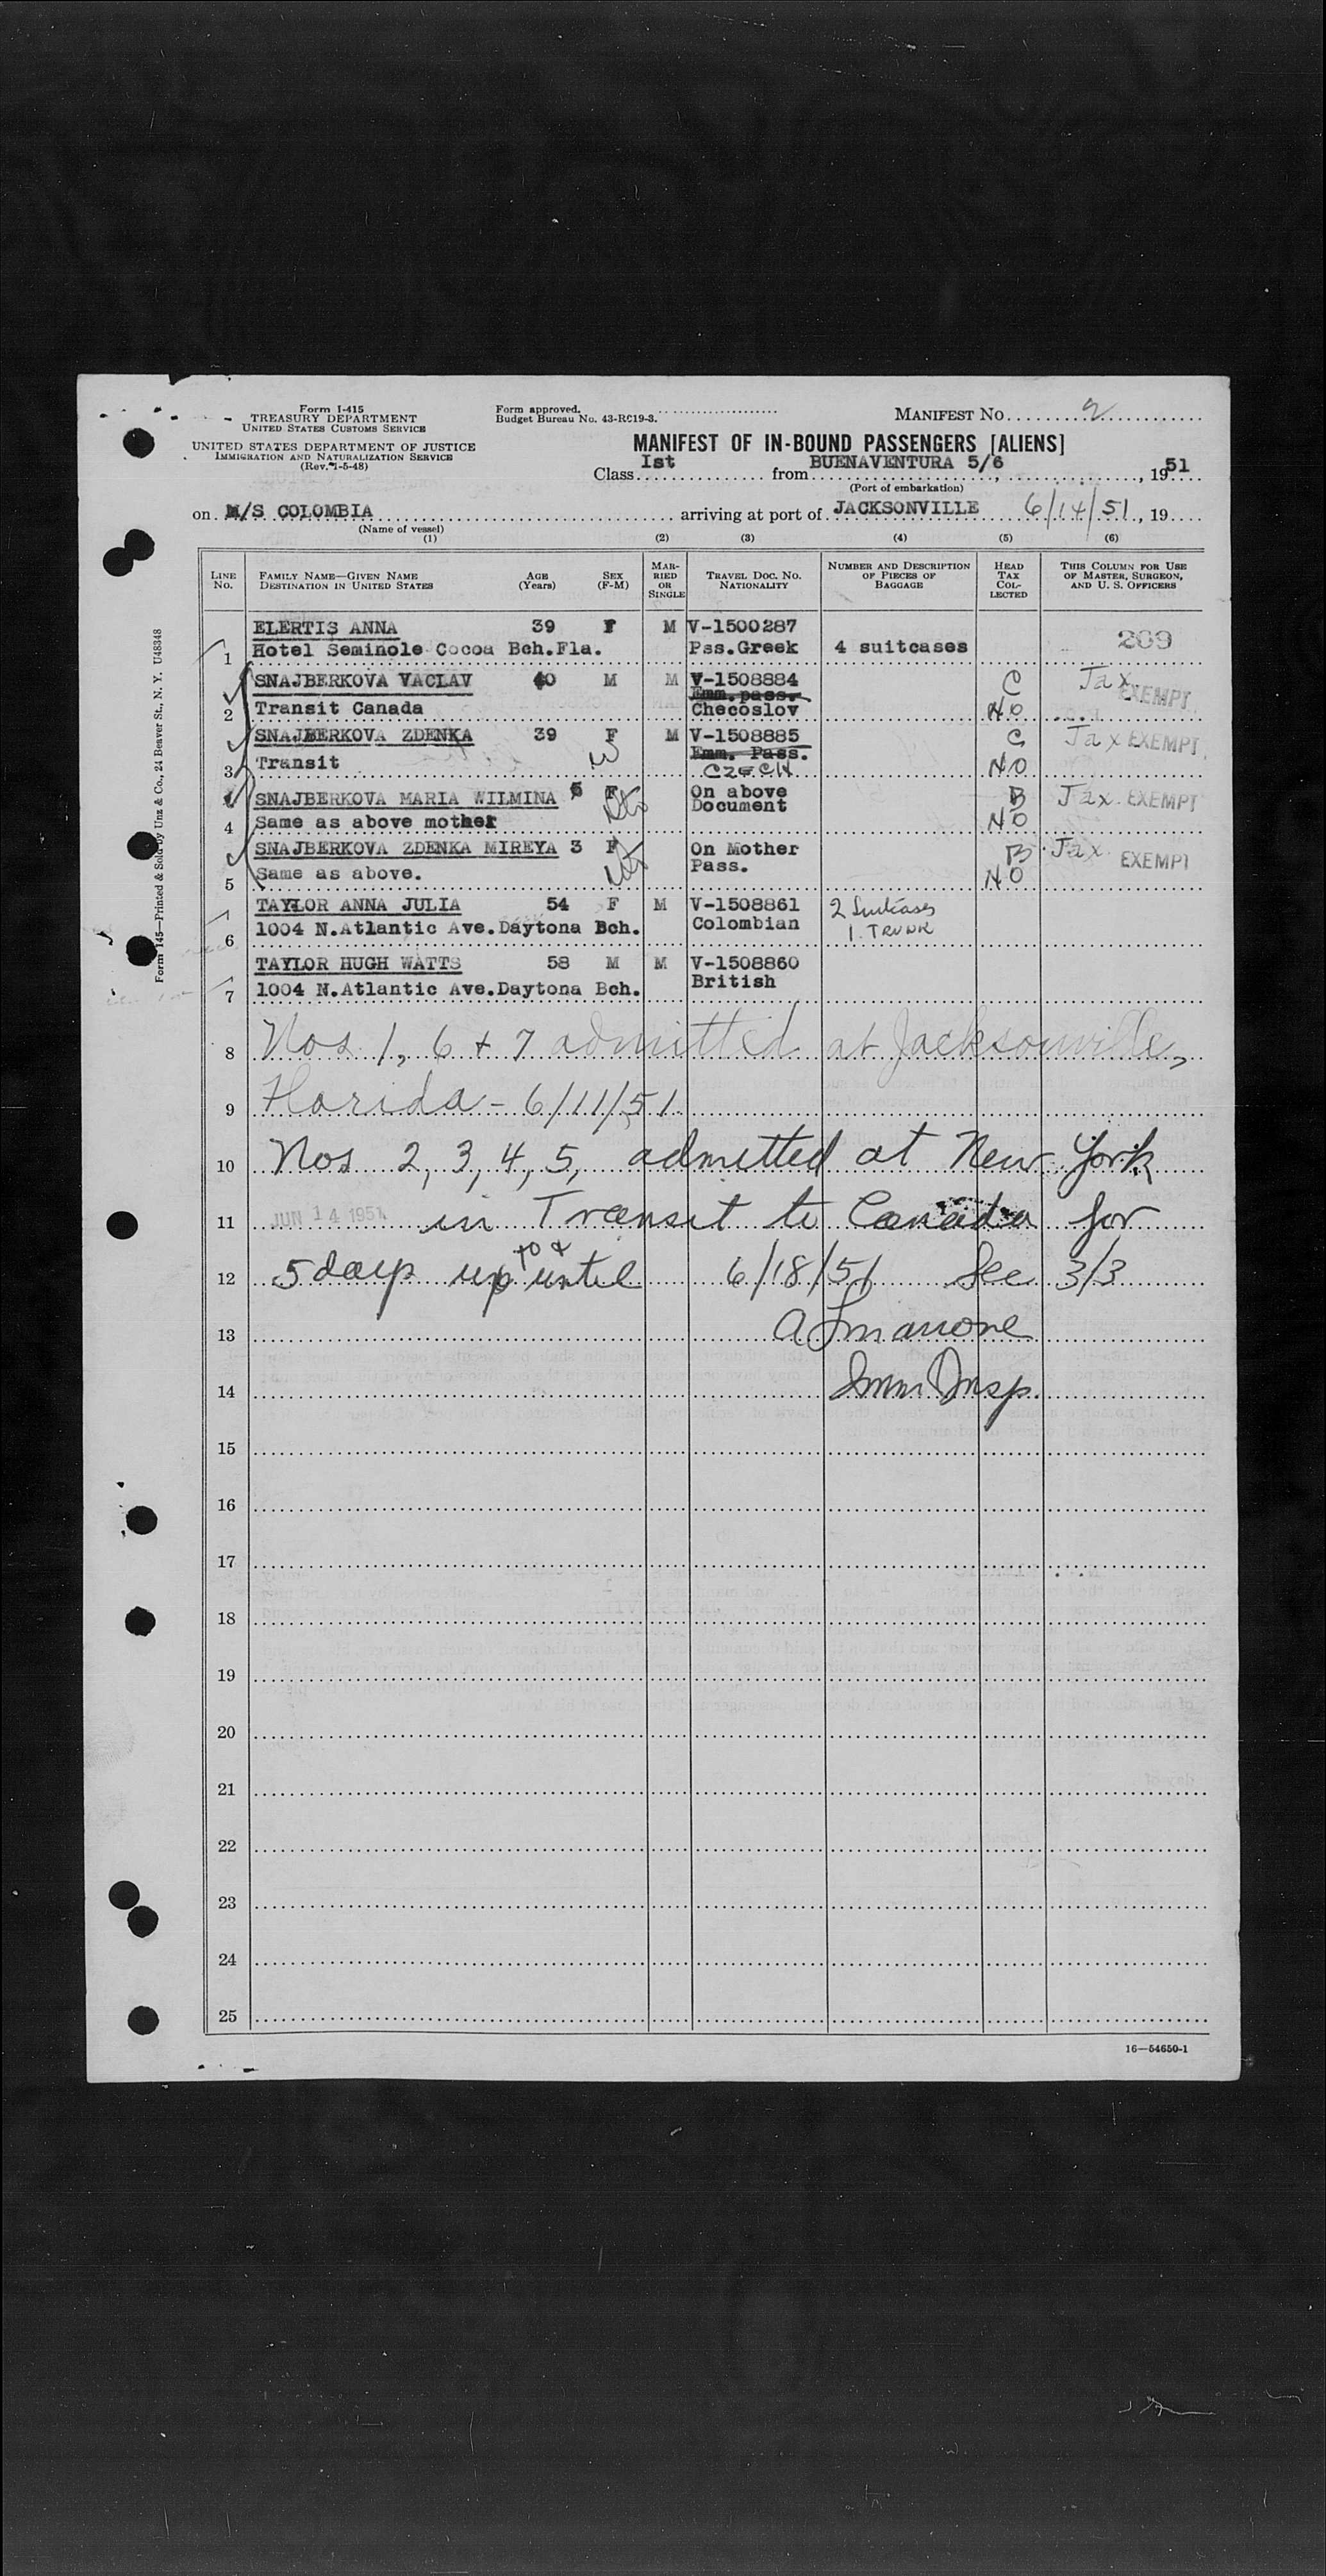 Form I-415
TREASURY DEPARTMENT
UNITED STATES CUSTOMS SERVICE
UNITED STATES DEPARTMENT OF JUSTICE
IMMIGRATION AND NATURALIZATION SERVICE
(Rev. 1-5-48)
Form approved.
Budget Bureau No. 43-RC19-3.
MANIFEST NO. 2
MANIFEST OF IN-BOUND PASSENGERS [ALIENS]
Class Ist from BUENAVENTURA 5/6, 1951
(Port of embarkation)
on M/S COLOMBIA arriving at port of JACKSONVILLE 6/14/51, 19
(Name of vessel)
(1) (2) (3) (4) (5) (6)
LINE NO. FAMILY NAME—GIVEN NAME DESTINATION IN UNITED STATES AGE (Years) SEX (F-M) MARRIED OR SINGLE TRAVEL DOC. NO. NATIONALITY NUMBER AND DESCRIPTION OF PIECES OF BAGGAGE HEAD TAX COLLECTED THIS COLUMN FOR USE OF MASTER, SURGEON, AND U. S. OFFICERS
ELERTIS ANNA 39 F M V-1500287
1 Hotel Seminole Cocoa Bch.Fla. Pss.Greek 4 suitcases 209
SNAJBERKOVA VACLAV 40 M M V-1508884 C Jax EXEMPT
Emm.pass.
2 Transit Canada Checoslov NO
SNAJBERKOVA ZDENKA 39 F M V-1508885 C Jax EXEMPT
Emm. Pass.
3 Transit W CZECH NO
SNAJBERKOVA MARIA WILMINA 5 F On above B Jax EXEMPT
Document
4 Same as above mother NO
SNAJBERKOVA ZDENKA MIREYA 3 F On Mother B Jax EXEMPT
5 Same as above. Pass. NO
TAYLOR ANNA JULIA 54 F M V-1508861 2 Suitcases
6 1004 N.Atlantic Ave.Daytona Bch. Colombian 1 TRUNK
TAYLOR HUGH WATTS 58 M M V-1508860
7 1004 N.Atlantic Ave.Daytona Bch. British
8 Nos 1, 6 + 7 admitted at Jacksonville,
9 Florida - 6/11/51.
10 Nos 2, 3, 4, 5, admitted at New York
11 JUN 14 1951 in Transit to Canada for
12 5 days up to & until 6/18/51 See 3/3
13
14 Imm Insp.
15
16
17
18
19
20
21
22
23
24
25
16—54650-1
Form 145—Printed & Sold by Unz & Co., 24 Beaver St., N. Y. U48348